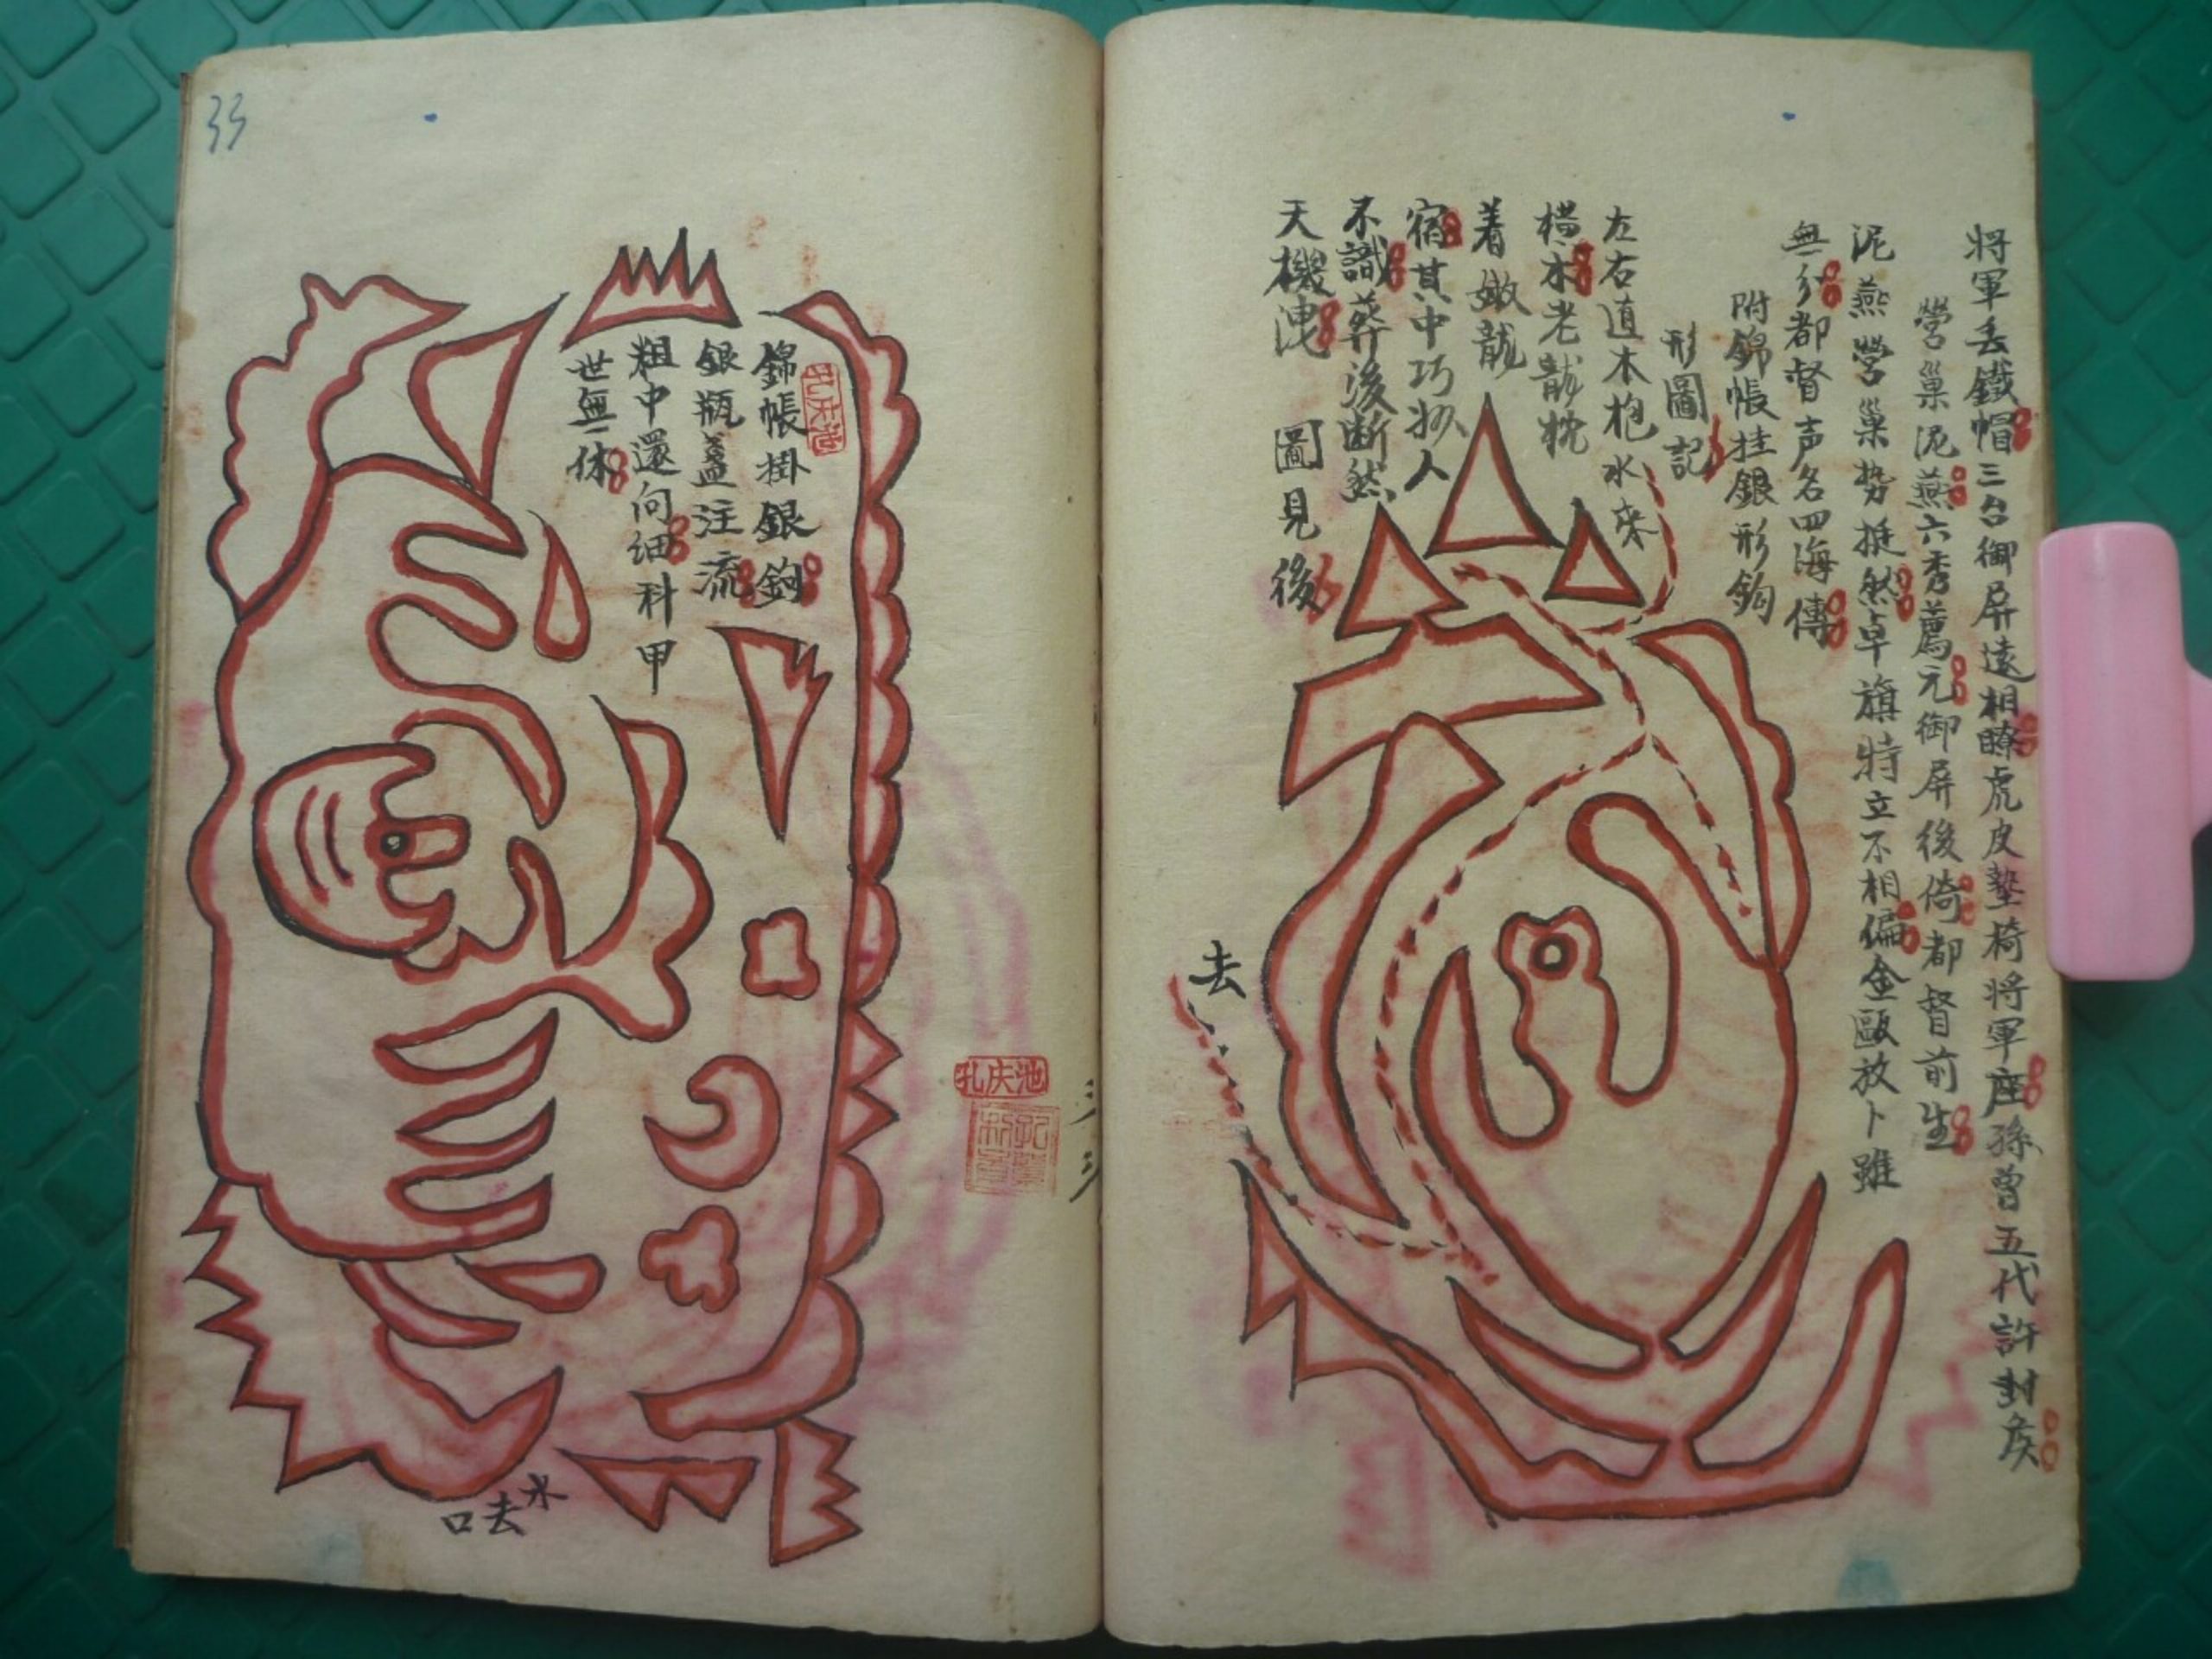 將軍丢鐵帽三台御屏遠相瞭虎皮墊椅将軍座孫曾五代許封侯
營巢泥燕六秀薦元御屏後倚都督前生
泥燕營巢势挺然卓旗特立不相偏金甌放卜雖
無分都督声名四海傳
附錦帳挂銀形鈎
形圖記
左右直木抱水來
橫木老龍枕
着嫩龍
宿其中巧扐人
不識葬後断然
天機洩 圖見後
去
錦帳掛銀鈎
銀瓶盞注流
粗中還向细科甲
世無休
水去口
孔庆池
三三
33